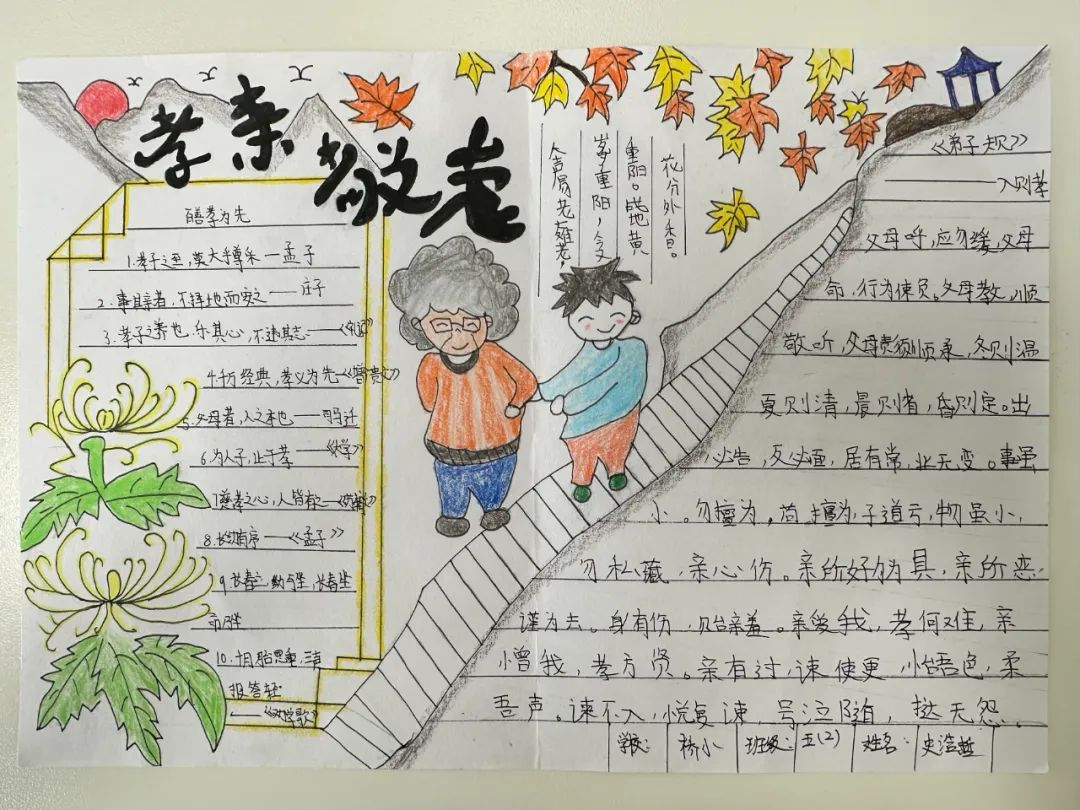 孝亲敬老
百善孝为先
1.孝子之至,莫大于尊亲—孟子
2.事其亲者,不择地而安之——庄子
3.孝子之养也,乐其心,不违其志.——《礼记》
4.千万经典,孝义为先—《增广贤文》
5.父母者,人之本也——司马迁
6.为人子,止于孝——《大学》
7.慈孝之心,人皆有之
8.长幼有序——《孟子》
9.长者立,幼勿坐,长者坐
命坐
10.十月胎恩重,三生
报答轻
——《劝孝歌》
人生易老天难老,
岁岁重阳,今又
重阳。战地黄
花分外香。
《弟子规》
——入则孝
父母呼,应勿缓,父母
命,行勿使懒。父母教,顺
敬听,父母责,须顺承,冬则温
夏则清,晨则省,昏则定。出
必告,反必面,居有常,业无变。事虽
小。勿擅为,苟擅为,子道亏,物虽小,
勿私藏,亲心伤。亲所好,为具,亲所恶,
谨为去。身有伤,贻亲羞。亲爱我,孝何难,亲
憎我,孝方贤。亲有过,谏使更,怡吾色,柔
吾声。谏不入,悦复谏,号泣随,挞无怨。
学校: 桥小 班级: 五(2) 姓名: 史浩